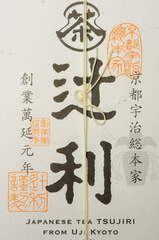 茶
辻利
京都宇治総本家
創業萬延元年
JAPANESE TEA TSUJIRI
FROM UJI KYOTO